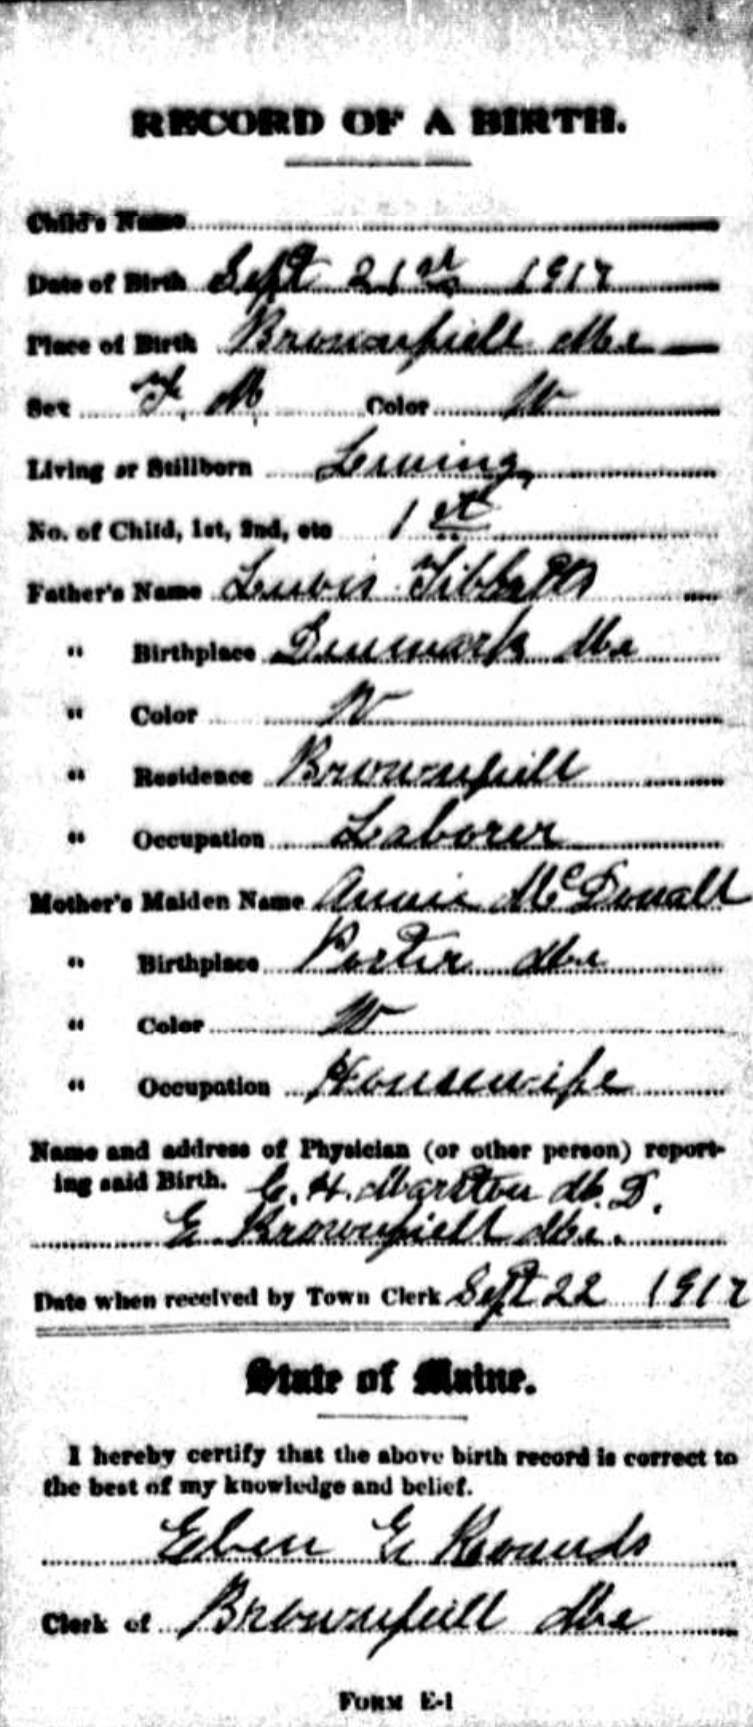 RECORD OF A BIRTH.
Child's Name
Date of Birth Sept 21st 1917
Place of Birth Brownfield Me
Sex F. M Color W
Living or Stillborn Living
No. of Child, 1st, 2nd, etc 1 st
Father's Name Lewis Tibbetts
" Birthplace Denmark Me
" Color W
" Residence Brownfield
" Occupation Laborer
Mother's Maiden Name Annie McDonald
" Birthplace Porter Me
" Color W
" Occupation Housewife
Name and address of Physician (or other person) report-
ing said Birth. C. H. Marston M. D.
E Brownfield Me.
Date when received by Town Clerk Sept 22 1917
State of Maine.
I hereby certify that the above birth record is correct to
the best of my knowledge and belief.
Eben G Rounds
Clerk of Brownfield Me
FORM E-1